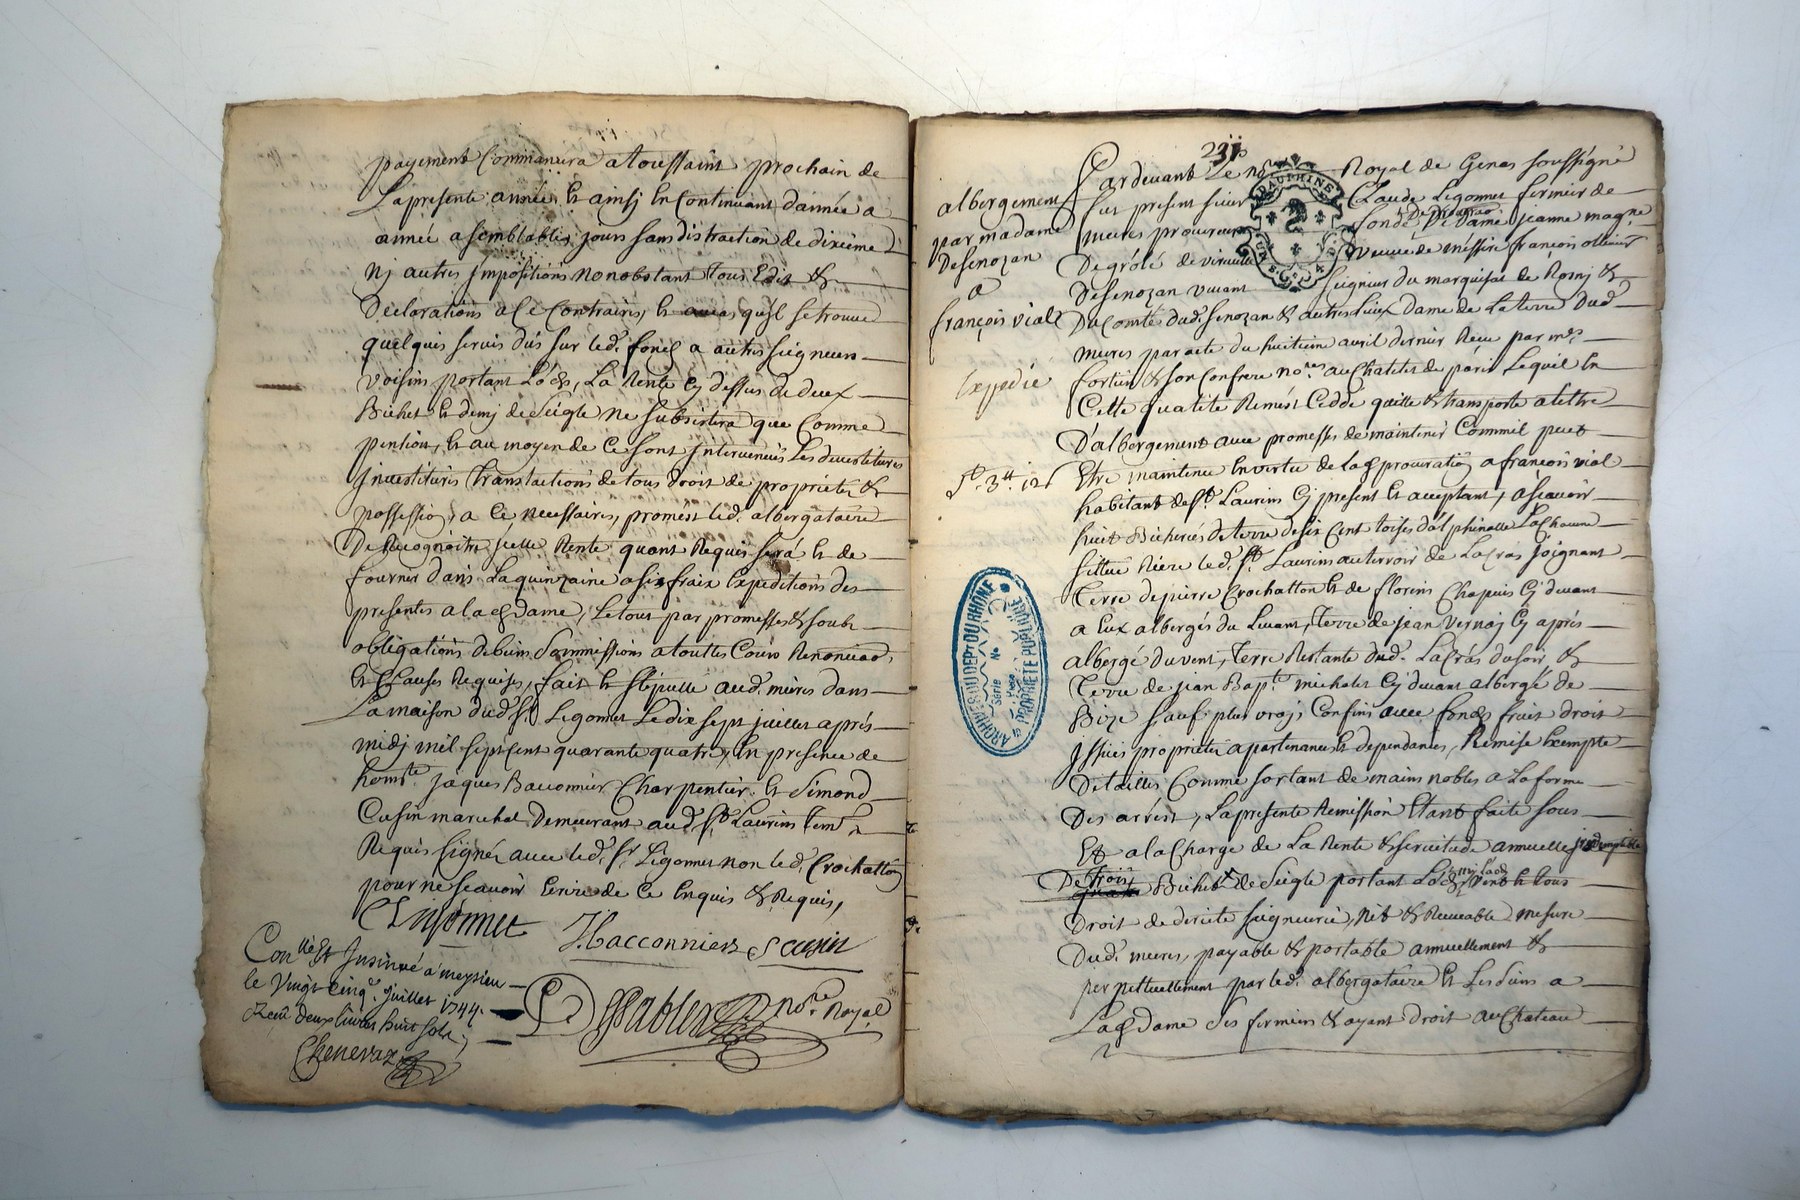 payement Commancera a toussaint prochain de
La presente année, & ainsj En Continuant dannée a
année a semblables jours sans distraction de dixieme
Nj autres Impositions nonobstant Tous Edit &
Declarations a Ce Contraires, & au cas qu'jl se trouve
quelques servis dûs sur led. fond a autres seigneurs
voisins portant Lods, La Rente Cy dessus de deux
Bichet & demj de seigle ne subsistera que Comme
pention, & au moyen de Ce sont Intervenües Les devestitures
Investitures translactions de tous droit de proprieté &
possession, a Ce necessaires, promest led. albergataire
De Recognoitre jcelle Rente quant Requis sera & de
fournir dans La quinzaine a ses fraix Expeditions des
presentes a lad. dame, Le tout par promesses & soubs
obligations de biens Soumissions a touttes Cours Renonciaõ.
& Clauses Requises, fait & stipullé aud. mûres dans
La maison dud. Sr. Legonnet Le dix sept juillet aprés
midj mil sept cent quarante quatre, En presence de
homte. jaques Bacconnier Charpentier & Simond
Cusin marechal Demeurant aud. St. Laurens Tem.
Requis signés avec led. Sr. Ligonnet non led. Crochatton
pour ne scavoir Ecrire de Ce Enquis & Requis,
CLigonnet
J.Bacconnier S cusin
Conllé & Insinué a meysieu
le Vingt Cinq. juillet 1744.
Recu deux livres huit sols
Chenevaz
Desablex nore. Royal
231
albergement
par madame
De senozan
a
françois vial
Expedié
3tt. 12s
Pardevant Le no Royal de Genas soussigné
fut present sieur Claude Legonnet fermier de
mures procureur fondé De procuraõ De Dame jeanne magne.
De grolé de viriville veuve de messire françois ollivier
De senozan vivant seigneur du marquisat de Rosnj &
Du Comté dud. senozan & autres Lieux dame de La terre dud.
mures par acte du huitieme avril dernier Recu par mes.
fortier & son Confrere nores au Chatelet de paris Lequel En
Cette qualité Remest Cedde quitte & transporte a tittre
D'albergement avec promesses de maintenir Comm'il peut
Etre maintenu En vertu de lad. procuration a françois vial
habitant de St. Laurens Cy present & acceptant, a scavoir
huit Bicherées de terre de six Cent toises delphinalle La Chacune
sittué Riere led. St. Laurens au terroir de La Cras joignant
Terre de pierre Crochatton & de florens Chapuis Cy devant
a Eux albergés du Levant, Terre de jean Vernaj Cy aprés
albergé du vent, Terre Restante dud. La Cras du soir, &
Terre de jean Bapte. michalet Cy devant albergé de
Bize sauf plus vrajs Confins avec fonds fruit droit
Issües proprietés apartenances & dependances, Remise Exempte
De tailles Comme sortant de mains nobles a La forme
Des arrest, La presente Remission Etant faite sous
Et a la Charge de La Rente & servitude annuelle jredimpible
De trois Bichets de seigle portant Lods, mj lods Vent & tous
Droit de directe seigneurie, Net & Recevable mesure
Dud. mures, payable & portable annuellement &
perpetuellement par led. albergataire & Les siens a
Lad. Dame ses fermiers & ayant droit au Chateau
DAUPHINÉ
ARCHIVES DU DEPT DU RHONE
Série No
Pièce
PROPRIÉTÉ PUBLIQUE